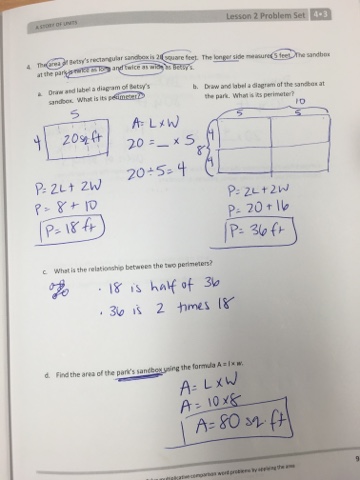 A STORY OF UNITS
Lesson 2 Problem Set 4•3
4. The area of Betsy's rectangular sandbox is 20 square feet. The longer side measures 5 feet. The sandbox
at the park is twice as long and twice as wide as Betsy's.
a. Draw and label a diagram of Betsy's
sandbox. What is its perimeter?
5
4
20 sq ft
A = L x W
20 = _ x 5
20 ÷ 5 = 4
P = 2L + 2W
P = 8 + 10
P = 18 ft
b. Draw and label a diagram of the sandbox at
the park. What is its perimeter?
10
5 5
8
4
4
P = 2L + 2W
P = 20 + 16
P = 36 ft
c. What is the relationship between the two perimeters?
· 18 is half of 36
· 36 is 2 times 18
d. Find the area of the park's sandbox using the formula A = l × w.
A = L x W
A = 10 x 8
A = 80 sq ft
multiplicative comparison word problems by applying the area
9